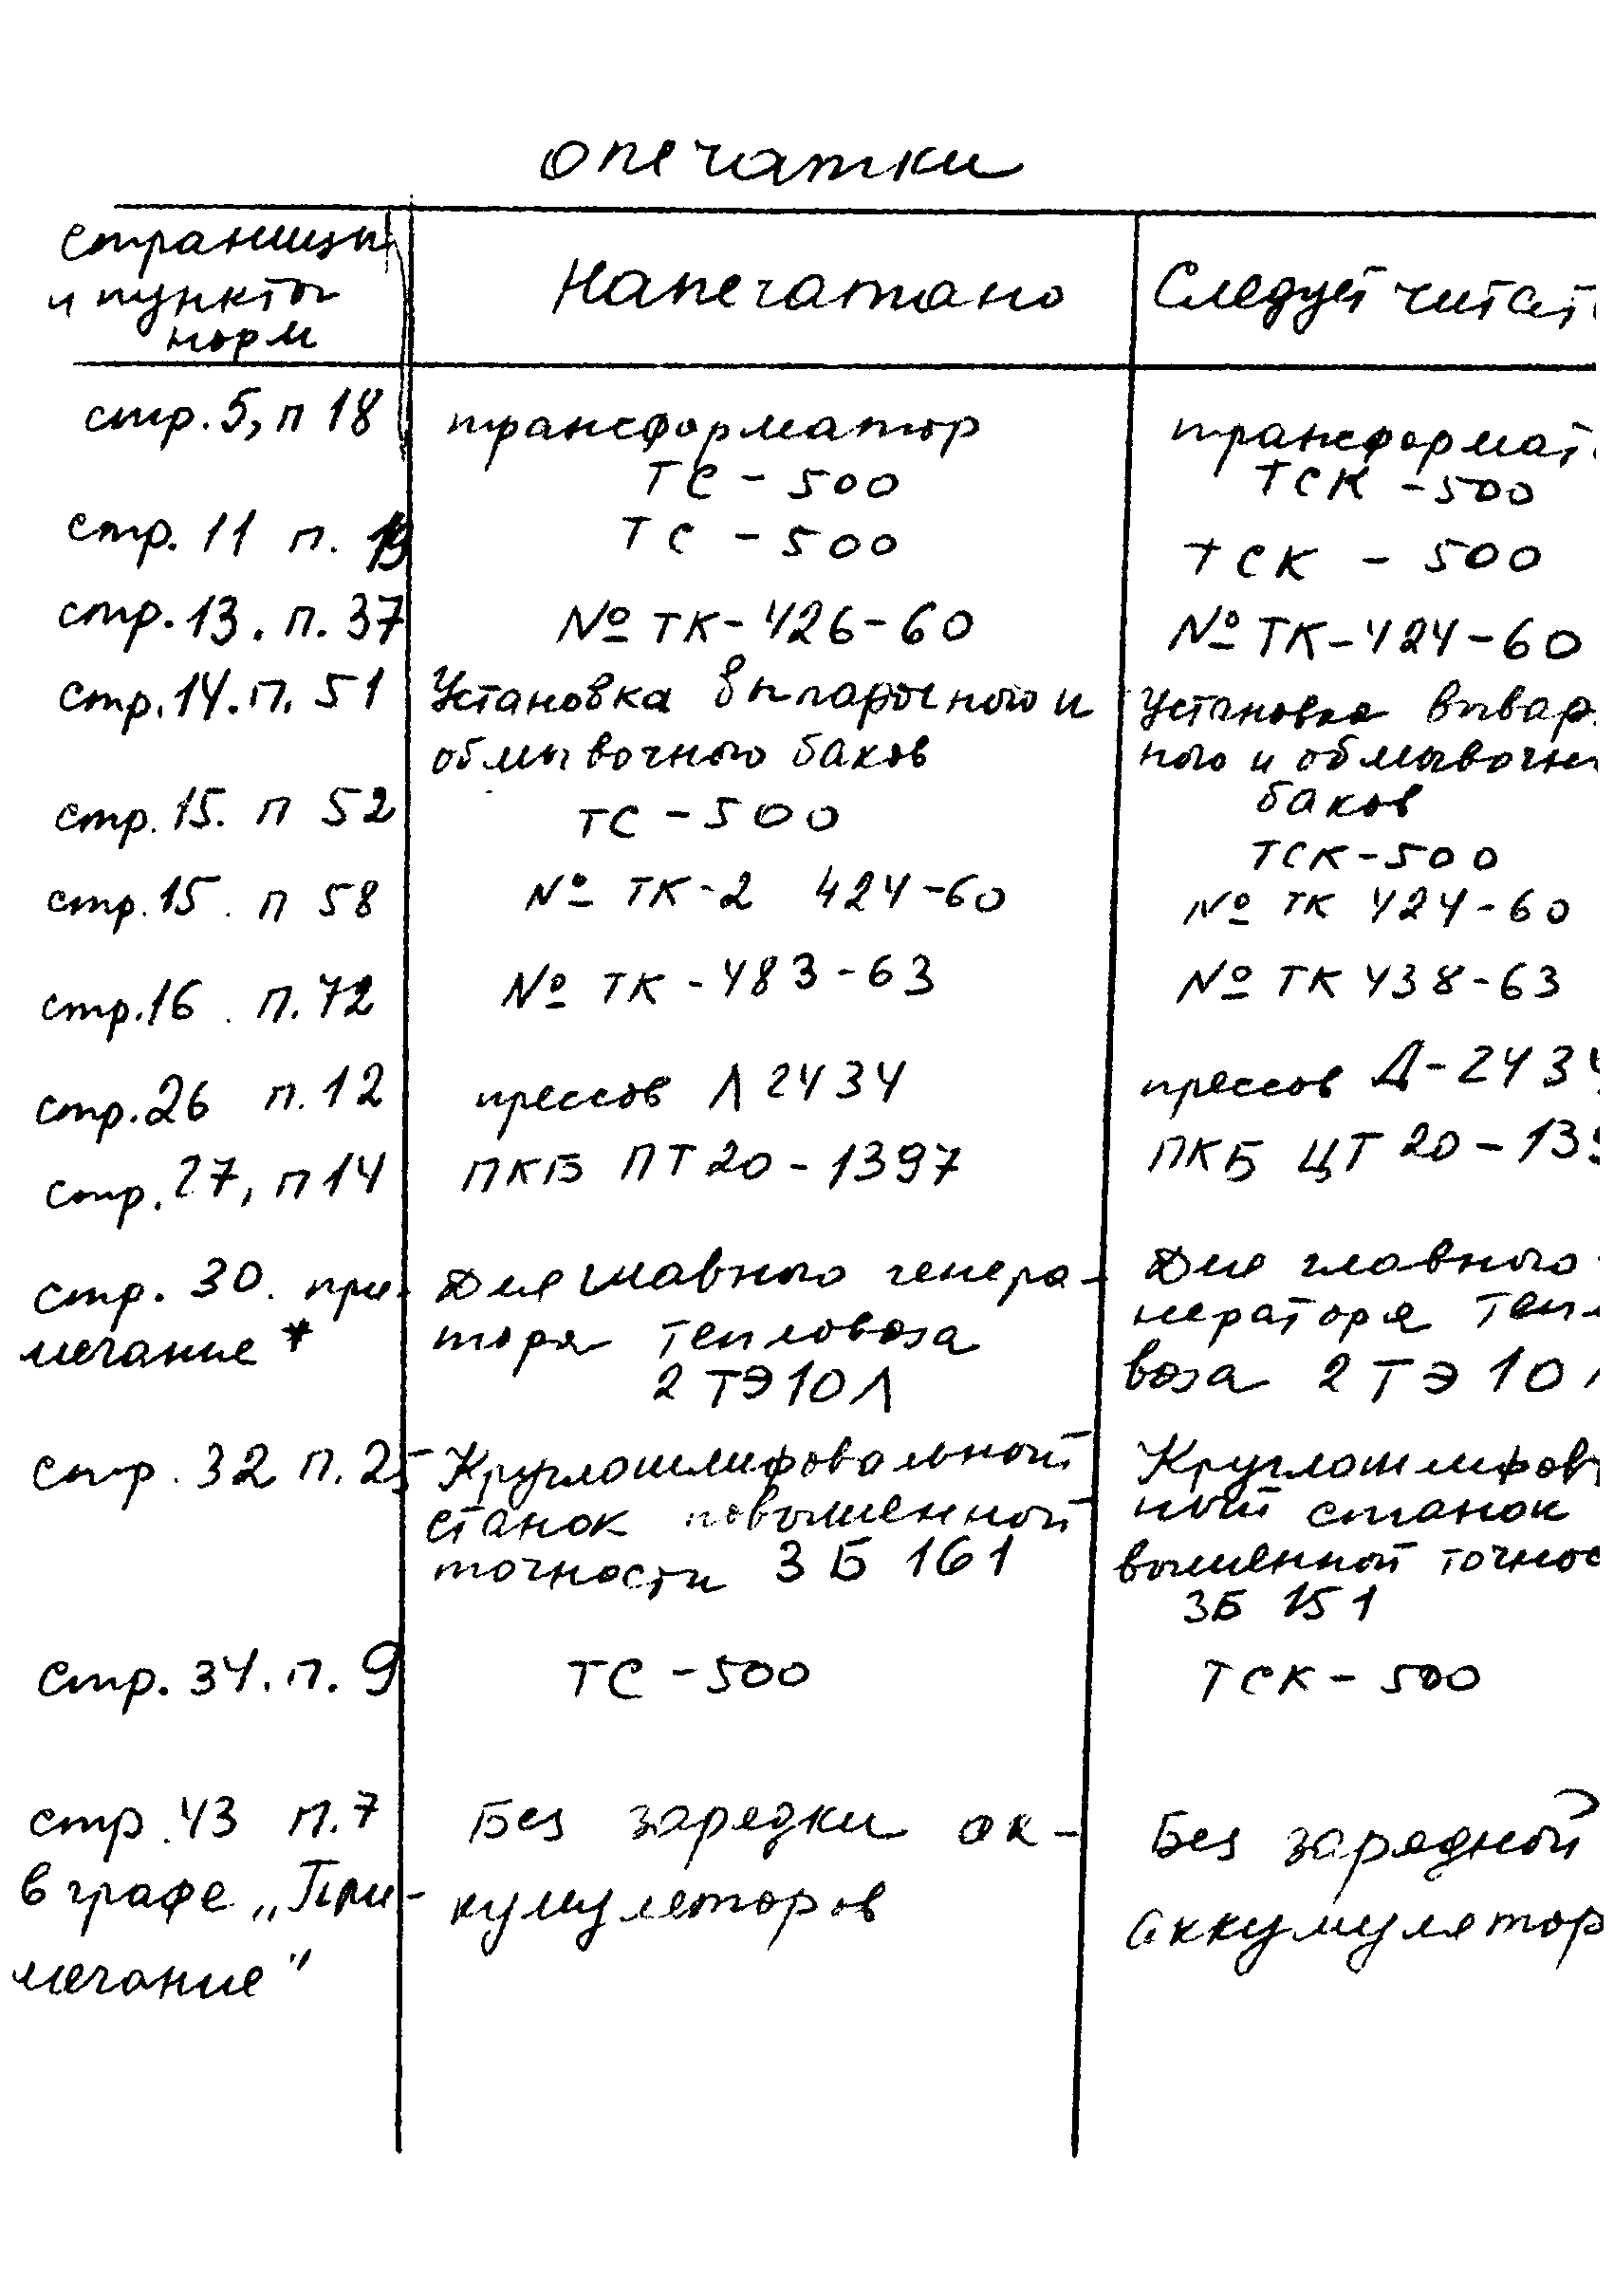 опечатки
страницы
и пункты
норм
Напечатано
Следует читат
стр. 5, п 18
трансформатор
ТС - 500
трансформат
ТСК - 500
стр. 11 п.
ТС - 500
ТСК - 500
стр. 13. п. 37
№ ТК - 426 - 60
№ ТК - 424 - 60
стр. 14. п. 51
Установка выпарочного и
обмывочного баков
Установка вывар
ного и обмывочн
баков
стр. 15. п 52
ТС - 500
ТСК - 500
стр. 15. п 58
№ ТК - 2 424 - 60
№ ТК 424 - 60
стр. 16. п. 72
№ ТК - 483 - 63
№ ТК 438 - 63
стр. 26 п. 12
прессов Л 2434
прессов Д - 2434
стр. 27, п 14
ПКБ ПТ 20 - 1397
ПКБ ЦТ 20 - 139
стр. 30. при-
мечание *
Для главного генера-
торя тепловоза
2 ТЭ10Л
Для главного
нераторя тепл
воза 2 ТЭ 10 Л
стр. 32 п. 25
Круглошлифовальной
станок повышенной
точности 3 Б 161
Круглошлифов
ный станок
вышенной точнос
3Б 151
стр. 34. п. 9
ТС - 500
ТСК - 500
стр. 43 п. 7
в графе „При-
мечание"
Без зарядки ак-
кумуляторов
Без зарядной
аккумулятор